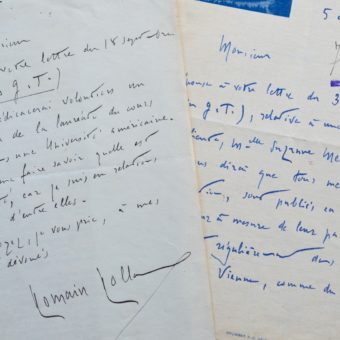 votre lettre du 18 septembre
g. T.)
volontiers un
de la lauréate du cours
une Université américaine.
me faire savoir quelle est
car je suis en relations
d'entre elles.
je vous prie, à mes
dévoués
Romain Rolland
5
Monsieur
à votre lettre du 3
g. T.), relative à une
Mlle Suzanne Me
dirai que tous mes
sont publiés en
à mesure de leur pa
régulière dans
Vienne, comme du